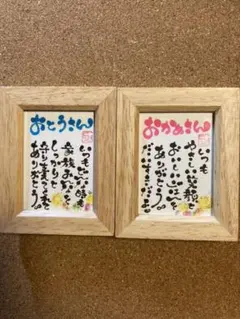 おとうさん
いつもどんな時も
家族みんなを
しっかりと
守り支えてくれて
ありがとう。
おかあさん
いつも
やさしい笑顔と
おいしいごはんを
ありがとう。
だいすきだよ。